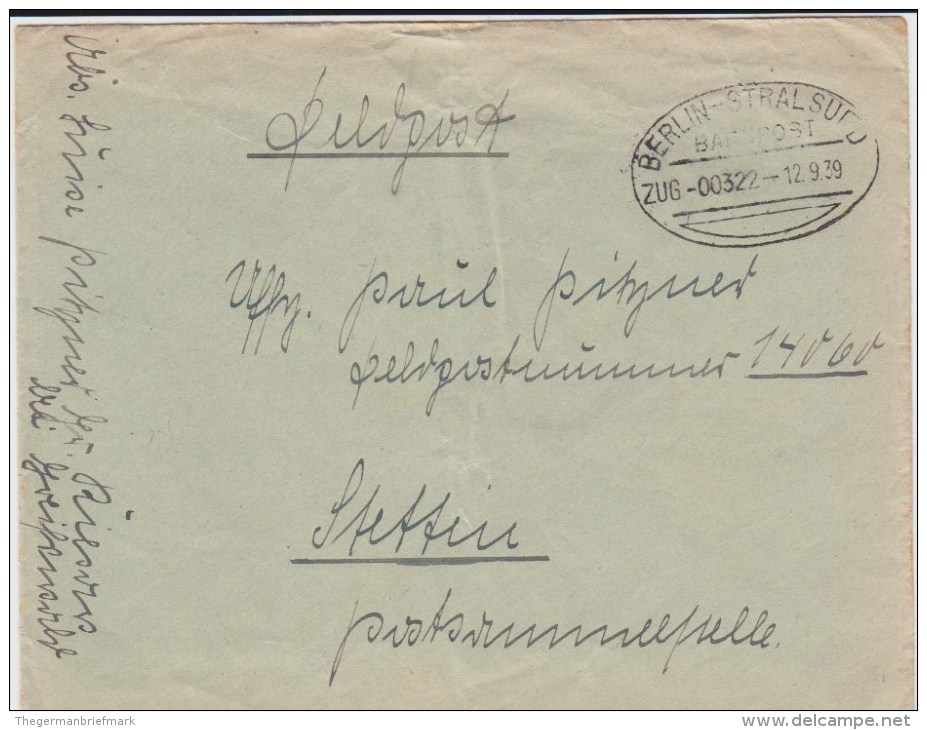 Feldpost
BERLIN-STRALSUND
BAHNPOST
ZUG-00322-12.9.39
Uffz. Paul Pitzner
Feldpostnummer 14060
Stettin
Postsammelstelle.
Abs. Luise Pitzner Gr. Kiesow
bei Greifswald
Thegermanbriefmark
www.delcampe.net